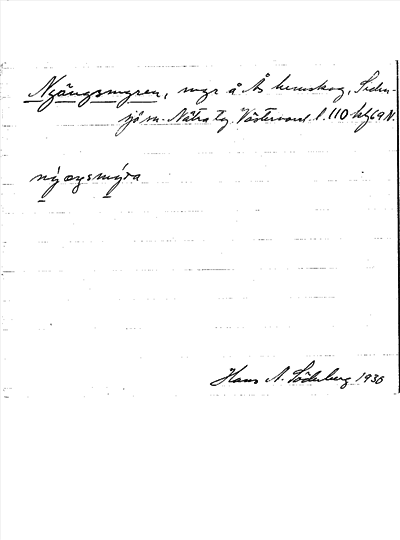 Nyängsmyren, myr å Ås hemskog, Siden-
sjö sn. Nätra tg. Västernorrl. l. 110 kbl 69 N.
nýæŋsmýra
Hans A. Söderberg 1930